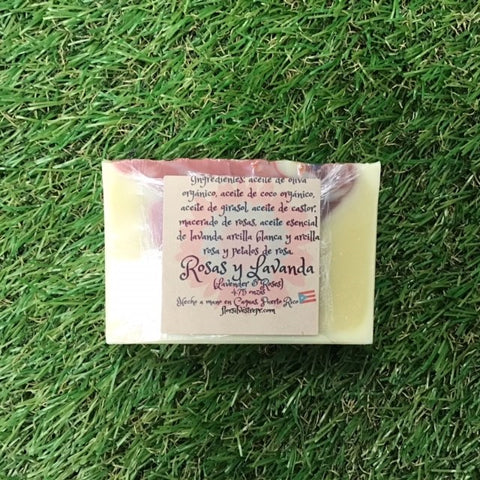 Ingredientes: aceite de oliva
orgánico, aceite de coco orgánico,
aceite de girasol, aceite de castor,
macerado de rosas, aceite esencial
de lavanda, arcilla blanca y arcilla
rosa y petalos de rosa.
Rosas y Lavanda
(Lavender & Roses)
4.75 onzas
Hecho a mano en Caguas, Puerto Rico
florsilvestrepr.com